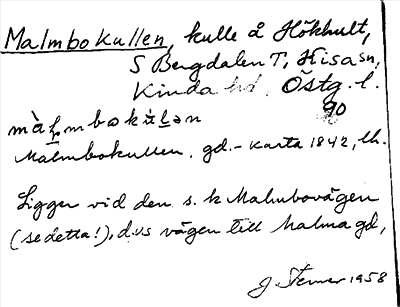 Malmbokullen, kulle å Hökhult,
S Bergdalen T, Kisa sn,
Kinda hd, Östg. l.
90
màl̥mbokàlən
Malmbokullen. gd.-karta 1842, lh.
Ligger vid den s. k Malmbovägen
(se detta!), d.v.s vägen till Malma gd,
J. Sterner 1958